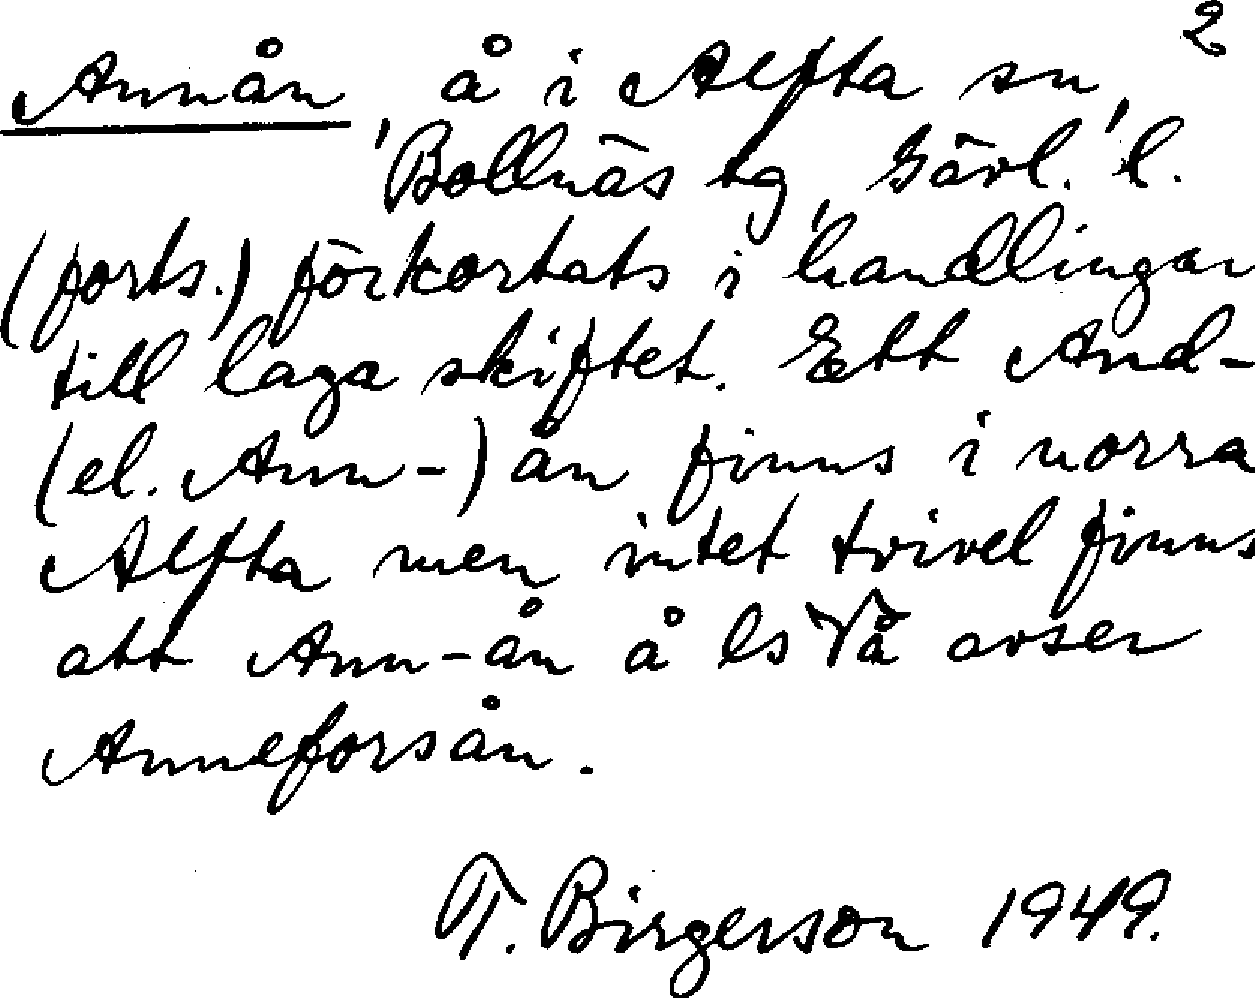 2
Annån å i Alfta sn,
Bollnäs tg, Gävl. l.
(forts.) förkortats i handlingar
till laga skiftet. Ett And-
(el. Ann-) ån finns i norra
Alfta men intet tvivel finns
att Ann-ån å ls Vå avser
Anneforsån.
T. Birgerson 1949.